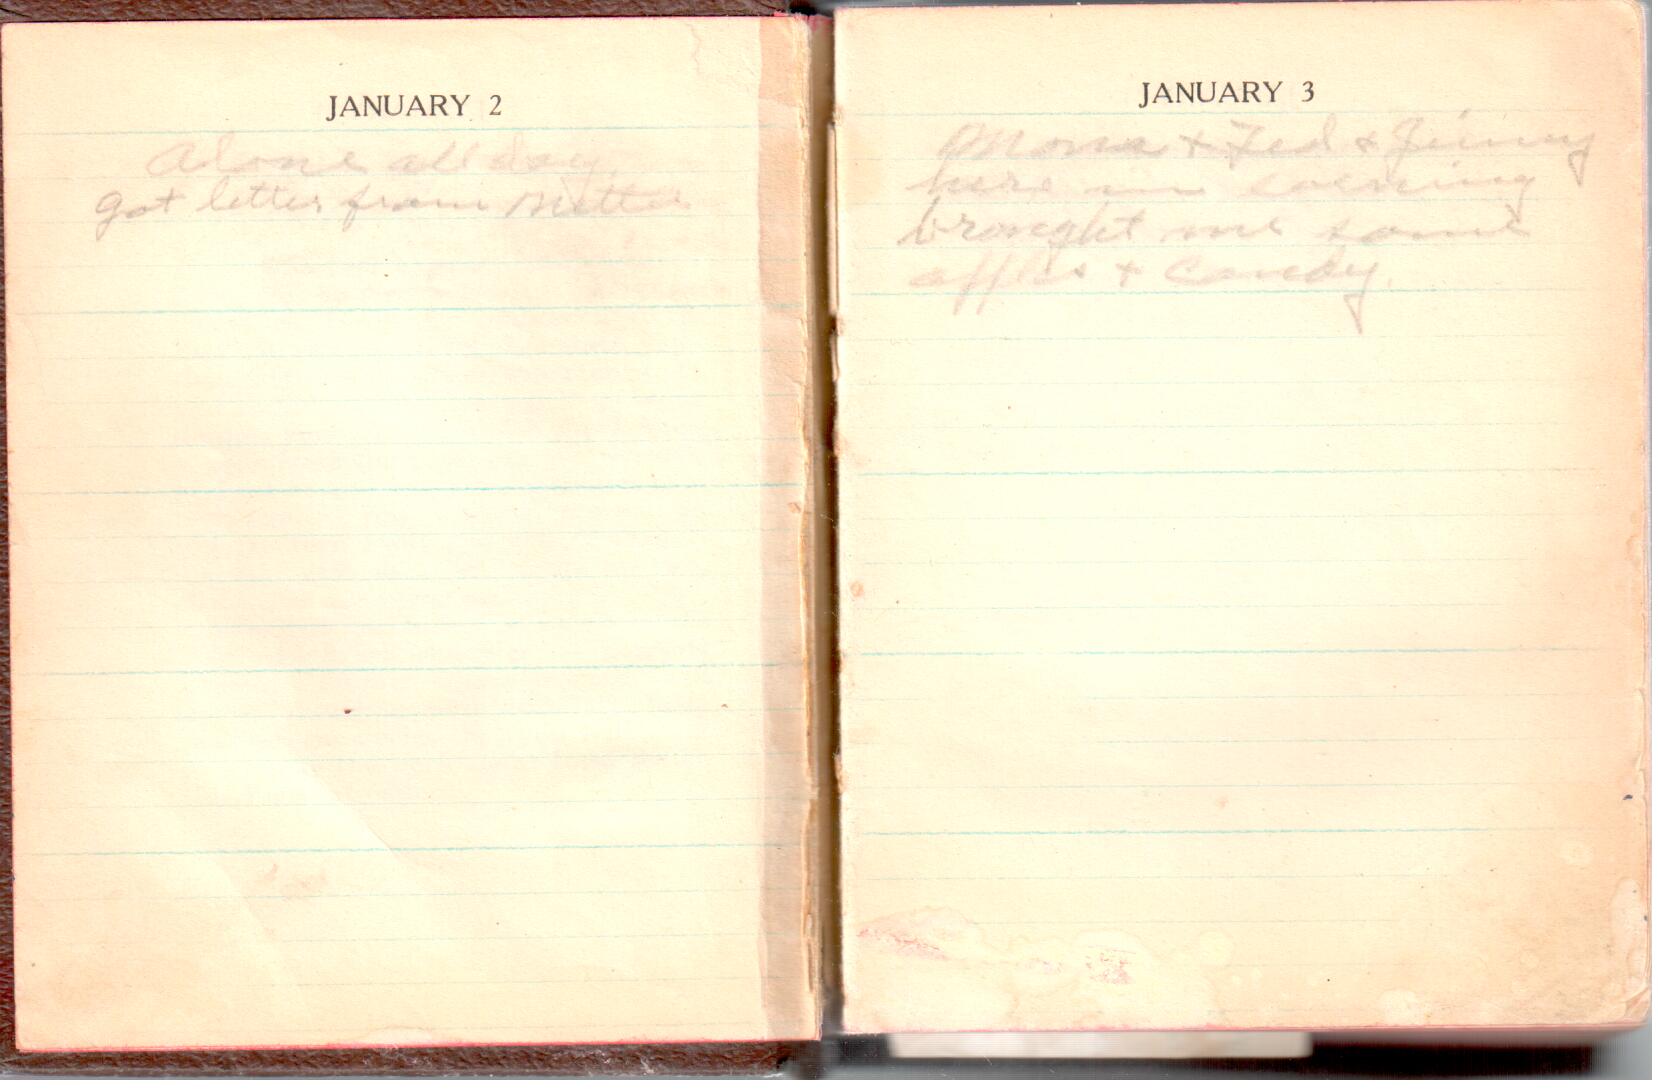 JANUARY 2
Alone all day
got letter from
JANUARY 3
& Ted & Jimmy
here in evening
brought me some
apples & candy.